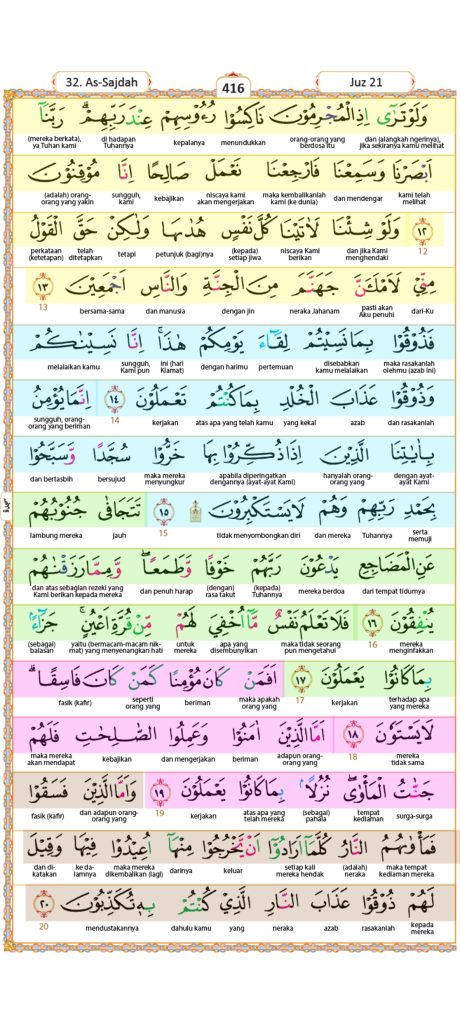 32. As-Sajdah
416
Juz 21
وَلَوْ تَرٰٓى اِذِ الْمُجْرِمُوْنَ نَاكِسُوْا رُءُوْسِهِمْ عِنْدَ رَبِّهِمْۗ رَبَّنَآ
dan (alangkah ngerinya), jika sekiranya kamu melihat orang-orang yang berdosa itu menundukkan kepalanya di hadapan Tuhannya (mereka berkata), ya Tuhan kami
اَبْصَرْنَا وَسَمِعْنَا فَارْجِعْنَا نَعْمَلْ صَالِحًا اِنَّا مُوْقِنُوْنَ
kami telah melihat dan mendengar maka kembalikanlah kami (ke dunia) niscaya kami akan mengerjakan kebajikan sungguh, kami (adalah) orang-orang yang yakin
١٢ وَلَوْ شِئْنَا لَاٰتَيْنَا كُلَّ نَفْسٍ هُدٰىهَا وَلٰكِنْ حَقَّ الْقَوْلُ
12 dan jika Kami menghendaki niscaya Kami berikan (kepada) setiap jiwa petunjuk (bagi)nya tetapi telah ditetapkan perkataan (ketetapan)
مِنِّيْ لَاَمْلَـَٔنَّ جَهَنَّمَ مِنَ الْجِنَّةِ وَالنَّاسِ اَجْمَعِيْنَ ١٣
dari-Ku pasti akan Aku penuhi neraka Jahanam dengan jin dan manusia bersama-sama 13
فَذُوْقُوْا بِمَا نَسِيْتُمْ لِقَاۤءَ يَوْمِكُمْ هٰذَاۚ اِنَّا نَسِيْنٰكُمْ
maka rasakanlah olehmu (azab ini) disebabkan kamu melalaikan pertemuan dengan harimu ini (hari Kiamat) sungguh, Kami pun melalaikan kamu
وَذُوْقُوْا عَذَابَ الْخُلْدِ بِمَا كُنْتُمْ تَعْمَلُوْنَ ١٤ اِنَّمَا يُؤْمِنُ
dan rasakanlah azab yang kekal atas apa yang telah kamu kerjakan 14 sungguh, orang-orang yang beriman
بِاٰيٰتِنَا الَّذِيْنَ اِذَا ذُكِّرُوْا بِهَا خَرُّوْا سُجَّدًا وَّسَبَّحُوْا
dengan ayat-ayat Kami hanyalah orang-orang yang apabila diperingatkan dengannya (ayat-ayat Kami) maka mereka menyungkur bersujud dan bertasbih
بِحَمْدِ رَبِّهِمْ وَهُمْ لَا يَسْتَكْبِرُوْنَ ۩ ١٥ تَتَجَافٰى جُنُوْبُهُمْ
serta memuji Tuhannya dan mereka tidak menyombongkan diri 15 jauh lambung mereka
سجدة
عَنِ الْمَضَاجِعِ يَدْعُوْنَ رَبَّهُمْ خَوْفًا وَّطَمَعًاۖ وَّمِمَّا رَزَقْنٰهُمْ
dari tempat tidurnya mereka berdoa (kepada) Tuhannya (dengan) rasa takut dan penuh harap dan atas sebagian rezeki yang Kami berikan kepada mereka
يُنْفِقُوْنَ ١٦ فَلَا تَعْلَمُ نَفْسٌ مَّآ اُخْفِيَ لَهُمْ مِّنْ قُرَّةِ اَعْيُنٍۚ جَزَاۤءً ۢ
mereka menginfakkan 16 maka tidak seorang pun mengetahui apa yang disembunyikan untuk mereka yaitu (bermacam-macam nikmat) yang menyenangkan hati (sebagai) balasan
بِمَا كَانُوْا يَعْمَلُوْنَ ١٧ اَفَمَنْ كَانَ مُؤْمِنًا كَمَنْ كَانَ فَاسِقًاۗ
terhadap apa yang mereka kerjakan 17 maka apakah orang yang beriman seperti orang yang fasik (kafir)
لَا يَسْتَوٗنَ ١٨ اَمَّا الَّذِيْنَ اٰمَنُوْا وَعَمِلُوا الصّٰلِحٰتِ فَلَهُمْ
mereka tidak sama 18 adapun orang-orang yang beriman dan mengerjakan kebajikan maka mereka akan mendapat
جَنّٰتُ الْمَأْوٰىۖ نُزُلًا ۢ بِمَا كَانُوْا يَعْمَلُوْنَ ١٩ وَاَمَّا الَّذِيْنَ فَسَقُوْا
surga-surga tempat kediaman (sebagai) pahala atas apa yang telah mereka kerjakan 19 dan adapun orang-orang yang fasik (kafir)
فَمَأْوٰىهُمُ النَّارُ كُلَّمَآ اَرَادُوْٓا اَنْ يَّخْرُجُوْا مِنْهَآ اُعِيْدُوْا فِيْهَا وَقِيْلَ
maka tempat kediaman mereka (adalah) neraka setiap kali mereka hendak keluar darinya maka mereka dikembalikan (lagi) ke dalamnya dan dikatakan
لَهُمْ ذُوْقُوْا عَذَابَ النَّارِ الَّذِيْ كُنْتُمْ بِهٖ تُكَذِّبُوْنَ ٢٠
kepada mereka rasakanlah azab neraka yang dahulu kamu mendustakannya 20